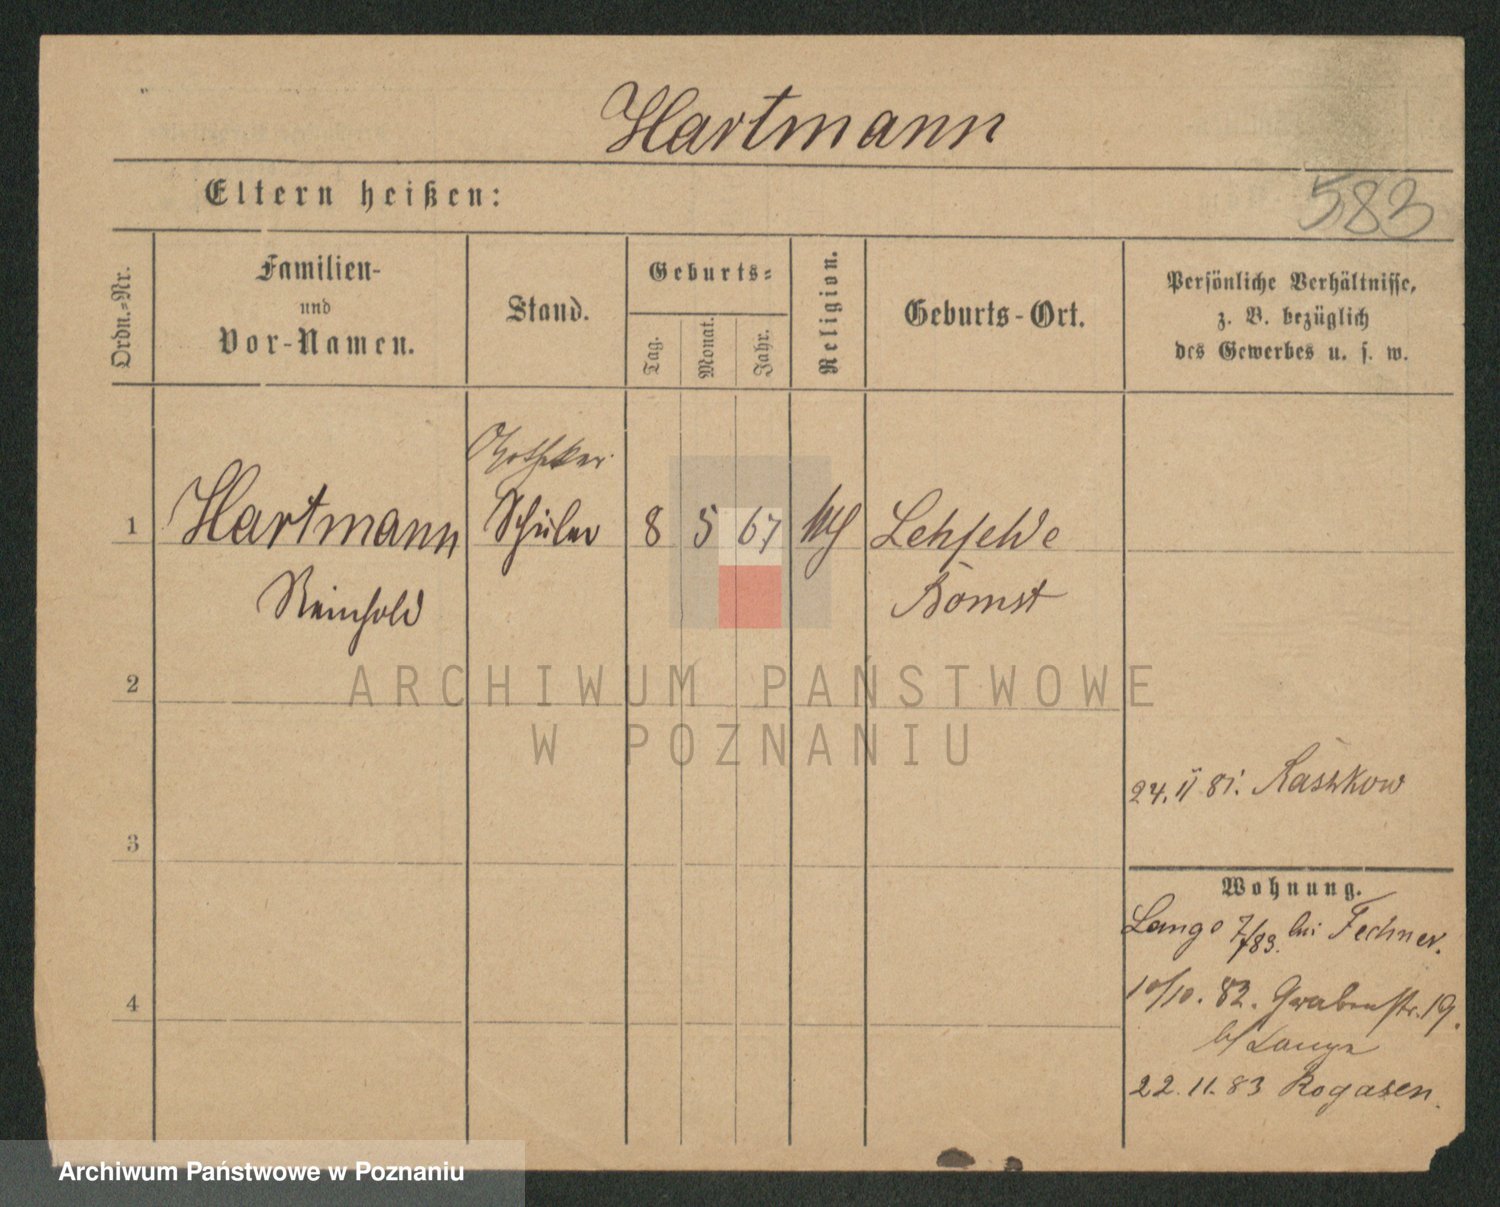 Hartmann
Eltern heißen:
583
Ordn.-Nr.
Familien-
und
Vor-Namen.
Stand.
Geburts-
Tag.
Monat.
Jahr.
Religion.
Geburts-Ort.
Persönliche Verhältnisse,
z. B. bezüglich
des Gewerbes u. s. w.
Apotheker
1 Hartmann Schüler 8 5 67 Lehfelde
Reinhold Bomst
ARCHIWUM PAŃSTWOWE
2
W POZNANIU
24. 11 81. Raschkow
3
Wohnung.
Lange 7/ 83. bei Fechner.
4 10/10. 82. Grabenstr. 19.
b/ Lange
22. 11. 83 Rogasen.
Archiwum Państwowe w Poznaniu